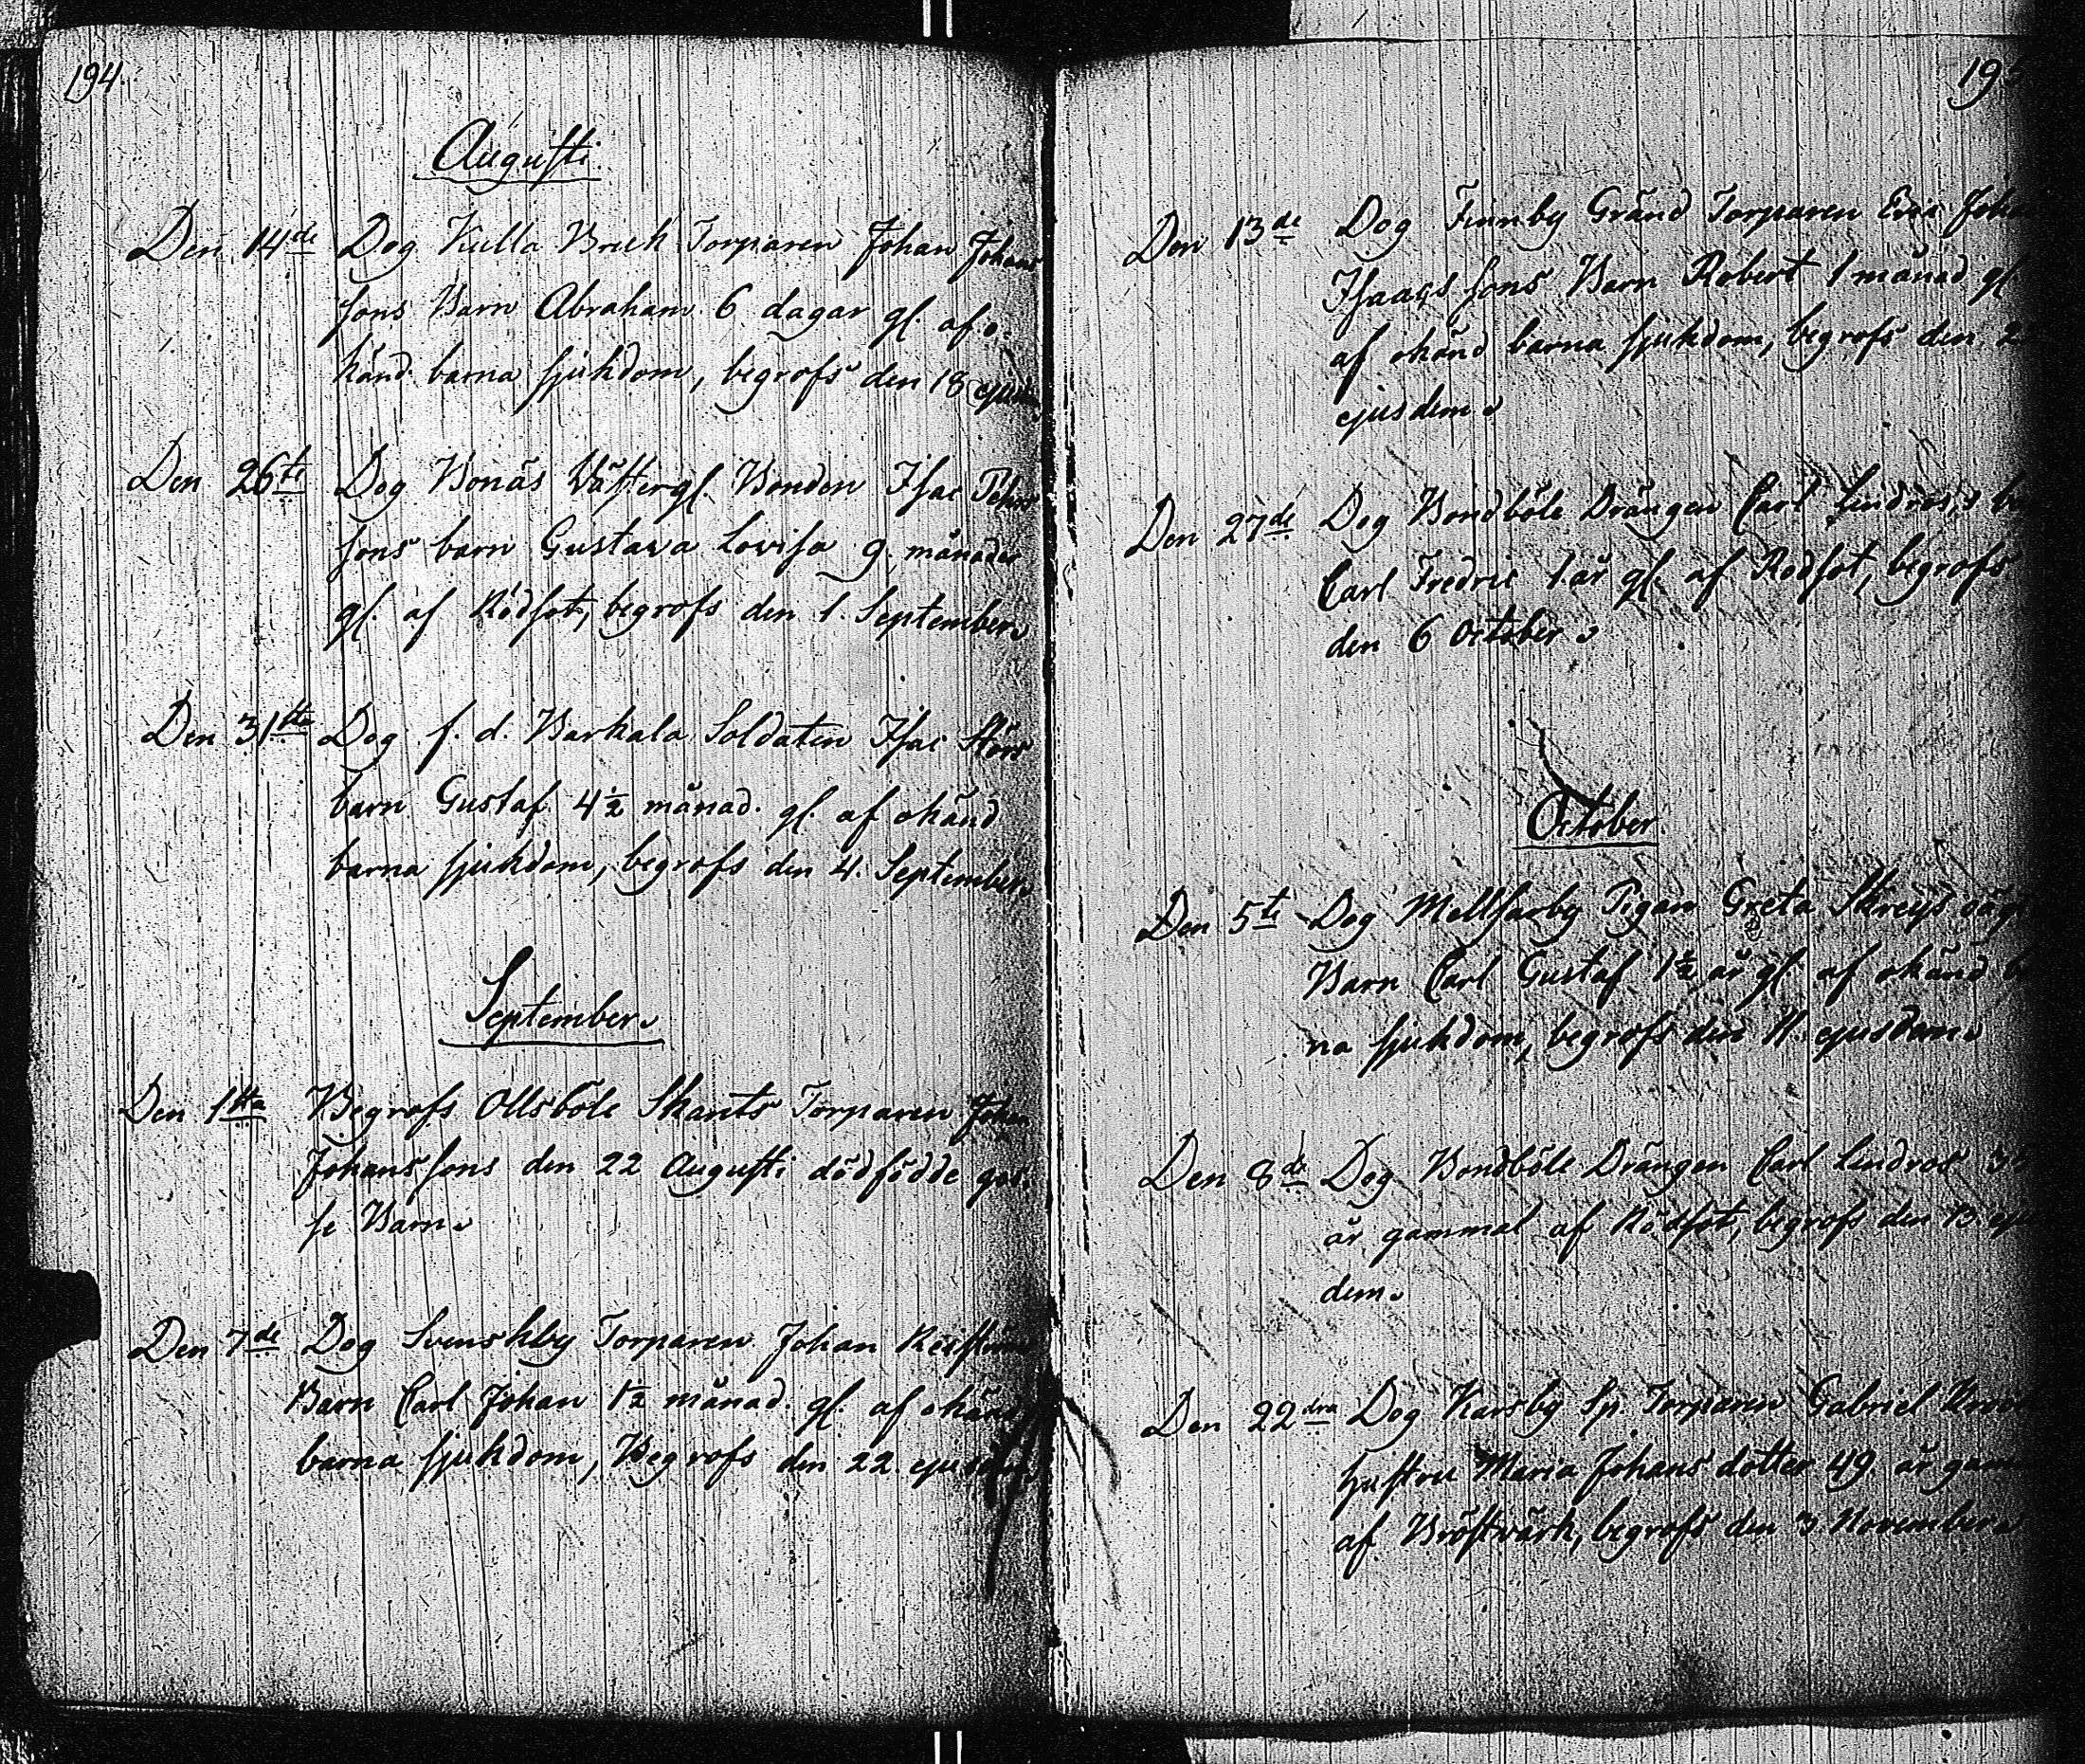 194.
Augusti
Den 14de Dog Kulla Bruk Torparen Johan Johans
sons Barn Abraham 6 dagar gl. af o-
känd barna sjukdom, begrofs den 18 ejusdem
Den 26te Dog Bonäs Västergl. Bonden Isac Pehrs
sons barn Gustava Lovisa 9 månader
gl. af Rödsot, begrofs den 1. September
Den 31sta Dog f. d. Barkala Soldaten Isac
barn Gustaf 4½ månad. gl. af okänd
barna sjukdom, begrofs den 4. September
September
Den 1sta Begrofs Ollsböle Skants Torparen Johan
Johanssons den 22 Augusti dödfödde gos-
se Barn
Den 7de Dog Svenskby Torparen Johan
Barn Carl Johan 1½ månad. gl. af okänd
barna sjukdom, Begrofs den 22 ejusdem
195
Den 13de Dog Finnby Gränd Torparen Eric
Isaacs sons Barn Robert 1 månad gl.
af okänd barna sjukdom, begrofs den
ejusdem
Den 27de Dog Bondböle Drängen Carl Lindros's
Carl Fredric 1 år gl. af Rödsot, begrofs
den 6 October
October
Den 5te Dog Mellsarby Pigan Greta
Barn Carl Gustaf 1½ år gl. af okänd
na sjukdom, begrofs den 11. ejusdem
Den 8de Dog Bondböle Drängen Carl Lindros
år gammal af Rödsot, begrofs den 13.
dem
Den 22dra Dog Karsby Sp. Torparen Gabriel
hustru Maria Johans dotter 49 år
af Bröstvärk, begrofs den 3 November